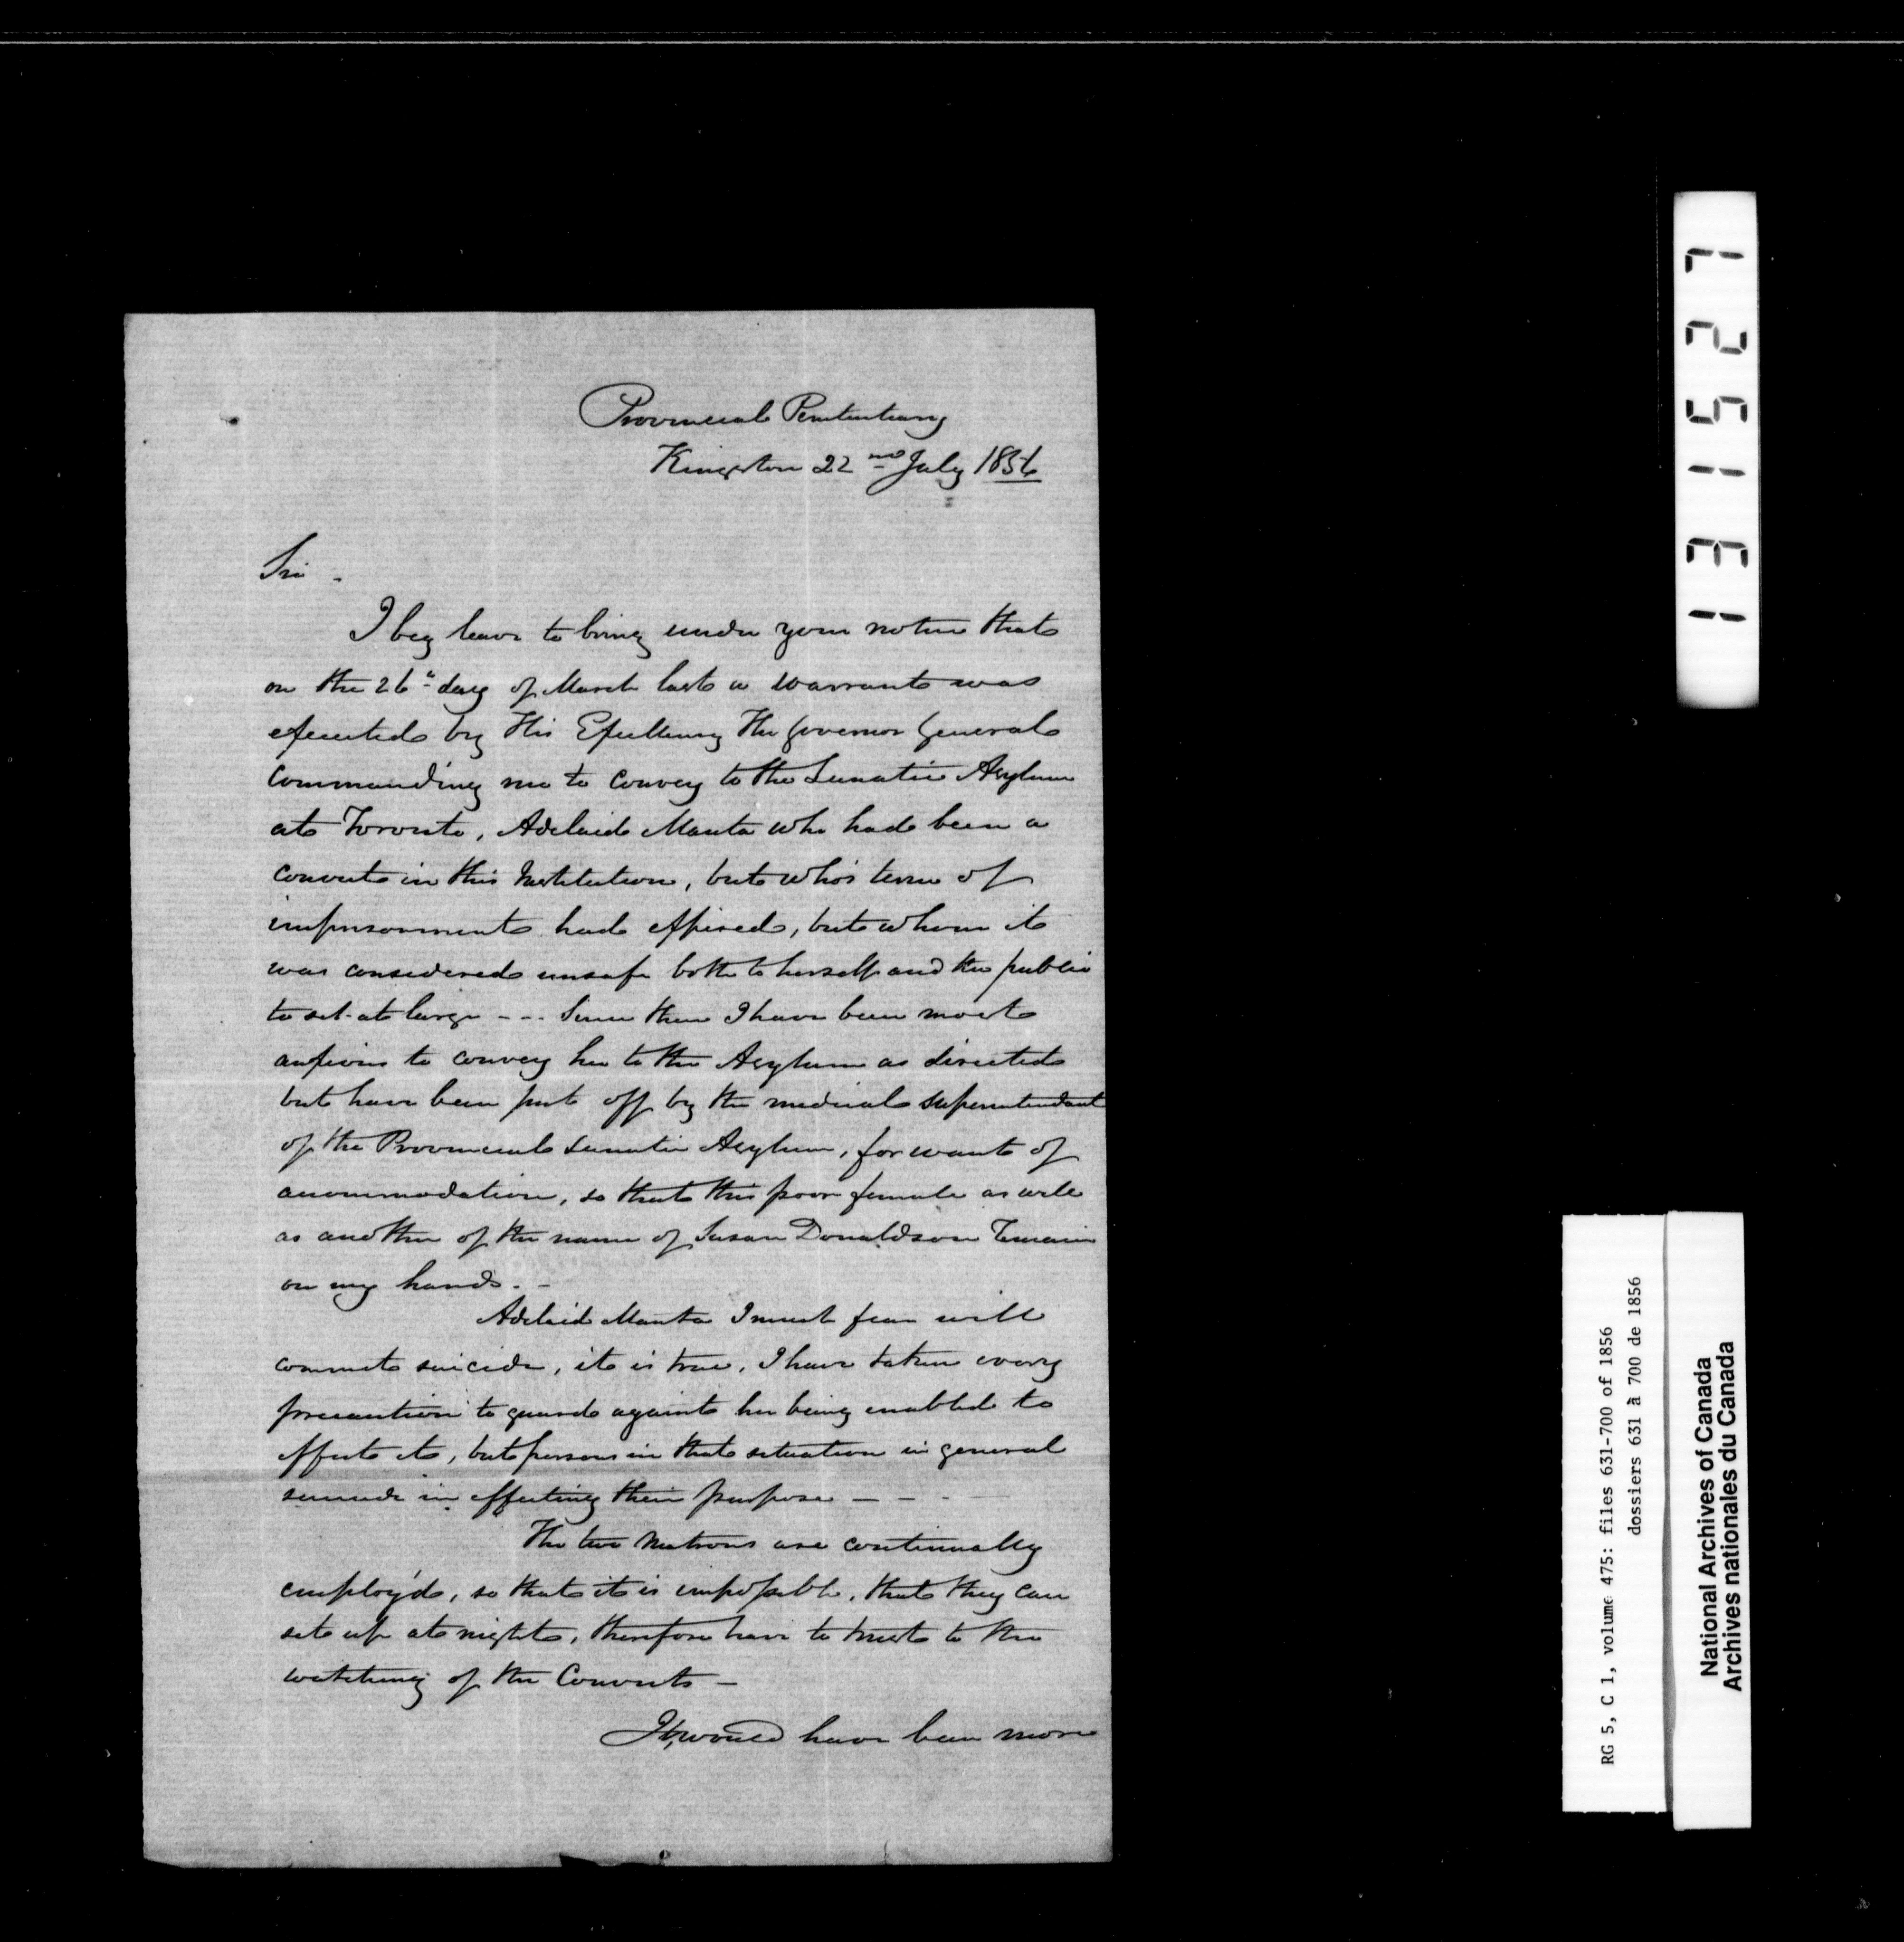 Provincial Penitentiary
Kingston 22nd July 1856
Sir -
I beg leave to bring under your notice that
on the 26th day of March last a Warrant was
executed by His Excellency The Governor General
Commanding me to Convey to the Lunatic Asylum
at Toronto, Adelaid Manta who had been a
Convict in this Institution, but who's term of
imprisonment had expired, but whom it
was considered unsafe both to herself and the public
to set at large --- Since then I have been most
anxious to convey her to the Asylum as directed
but have been put off by the medical superintendant
of the Provincial Lunatic Asylum, for want of
accommodation, so that this poor female as well
as another of the name of Susan Donaldson remain
on my hands. -
Adelaid Manta I must fear will
commit suicide, it is true, I have taken every
precaution to guard against her being enabled to
effect it, but persons in that situation in general
succeed in effecting their purpose - - -
The two Matrons are continually
employ'd, so that it is impossible, that they can
set up at night, therefore have to trust to the
watching of the Convicts -
It, would have been more
131527
RG 5, C 1, volume 475: files 631-700 of 1856
dossiers 631 à 700 de 1856
National Archives of Canada
Archives nationales du Canada